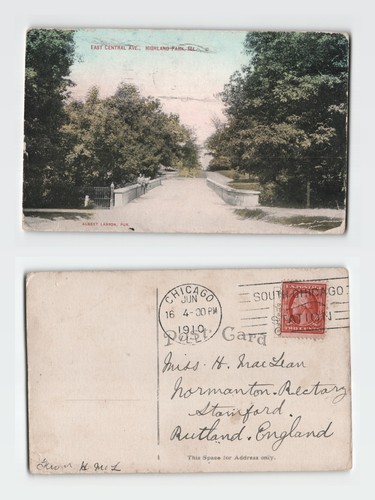 EAST CENTRAL AVE., HIGHLAND PARK, ILL.
ALBERT LARSON, PUB.
CHICAGO
JUN
16 4-00 PM
1910
ILL.
SOUTH CHICAGO
STATION
Post Card
Miss. H. MacLean
Normanton-Rectary
Stamford.
Rutland. England
This Space for Address only.
From H McL